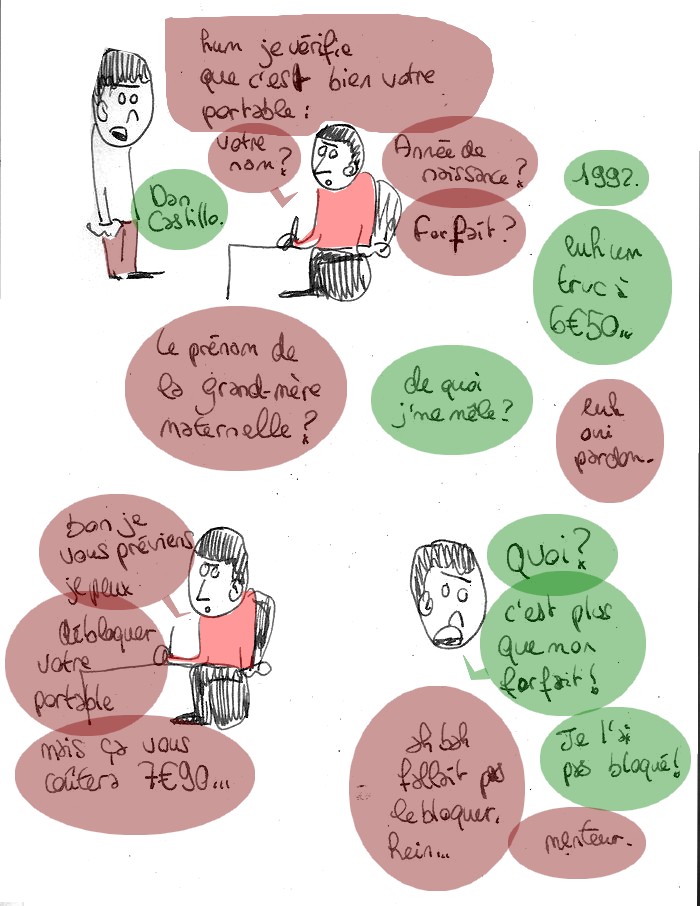 hum je vérifie
que c'est bien votre
portable :
votre
nom ?
Dan
Castillo.
Année de
naissance ?
1992.
Forfait ?
euh un
truc à
6€50...
Le prénom de
la grand-mère
maternelle ?
de quoi
j'me mêle ?
euh
oui
pardon.
bon je
vous préviens
je peux
débloquer
votre
portable
mais ça vous
coûtera 7€90...
Quoi ?
c'est plus
que mon
forfait !
Je l'ai
pas bloqué !
ah bah
fallait pas
le bloquer.
hein...
menteur.